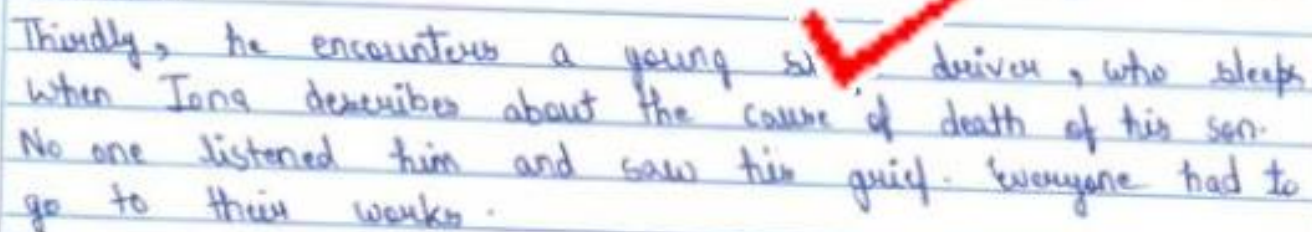 Thirdly, he encounters a young driver, who sleeps
when Iona describes about the cause of death of his son.
No one listened him and saw his grief. Everyone had to
go to their works.